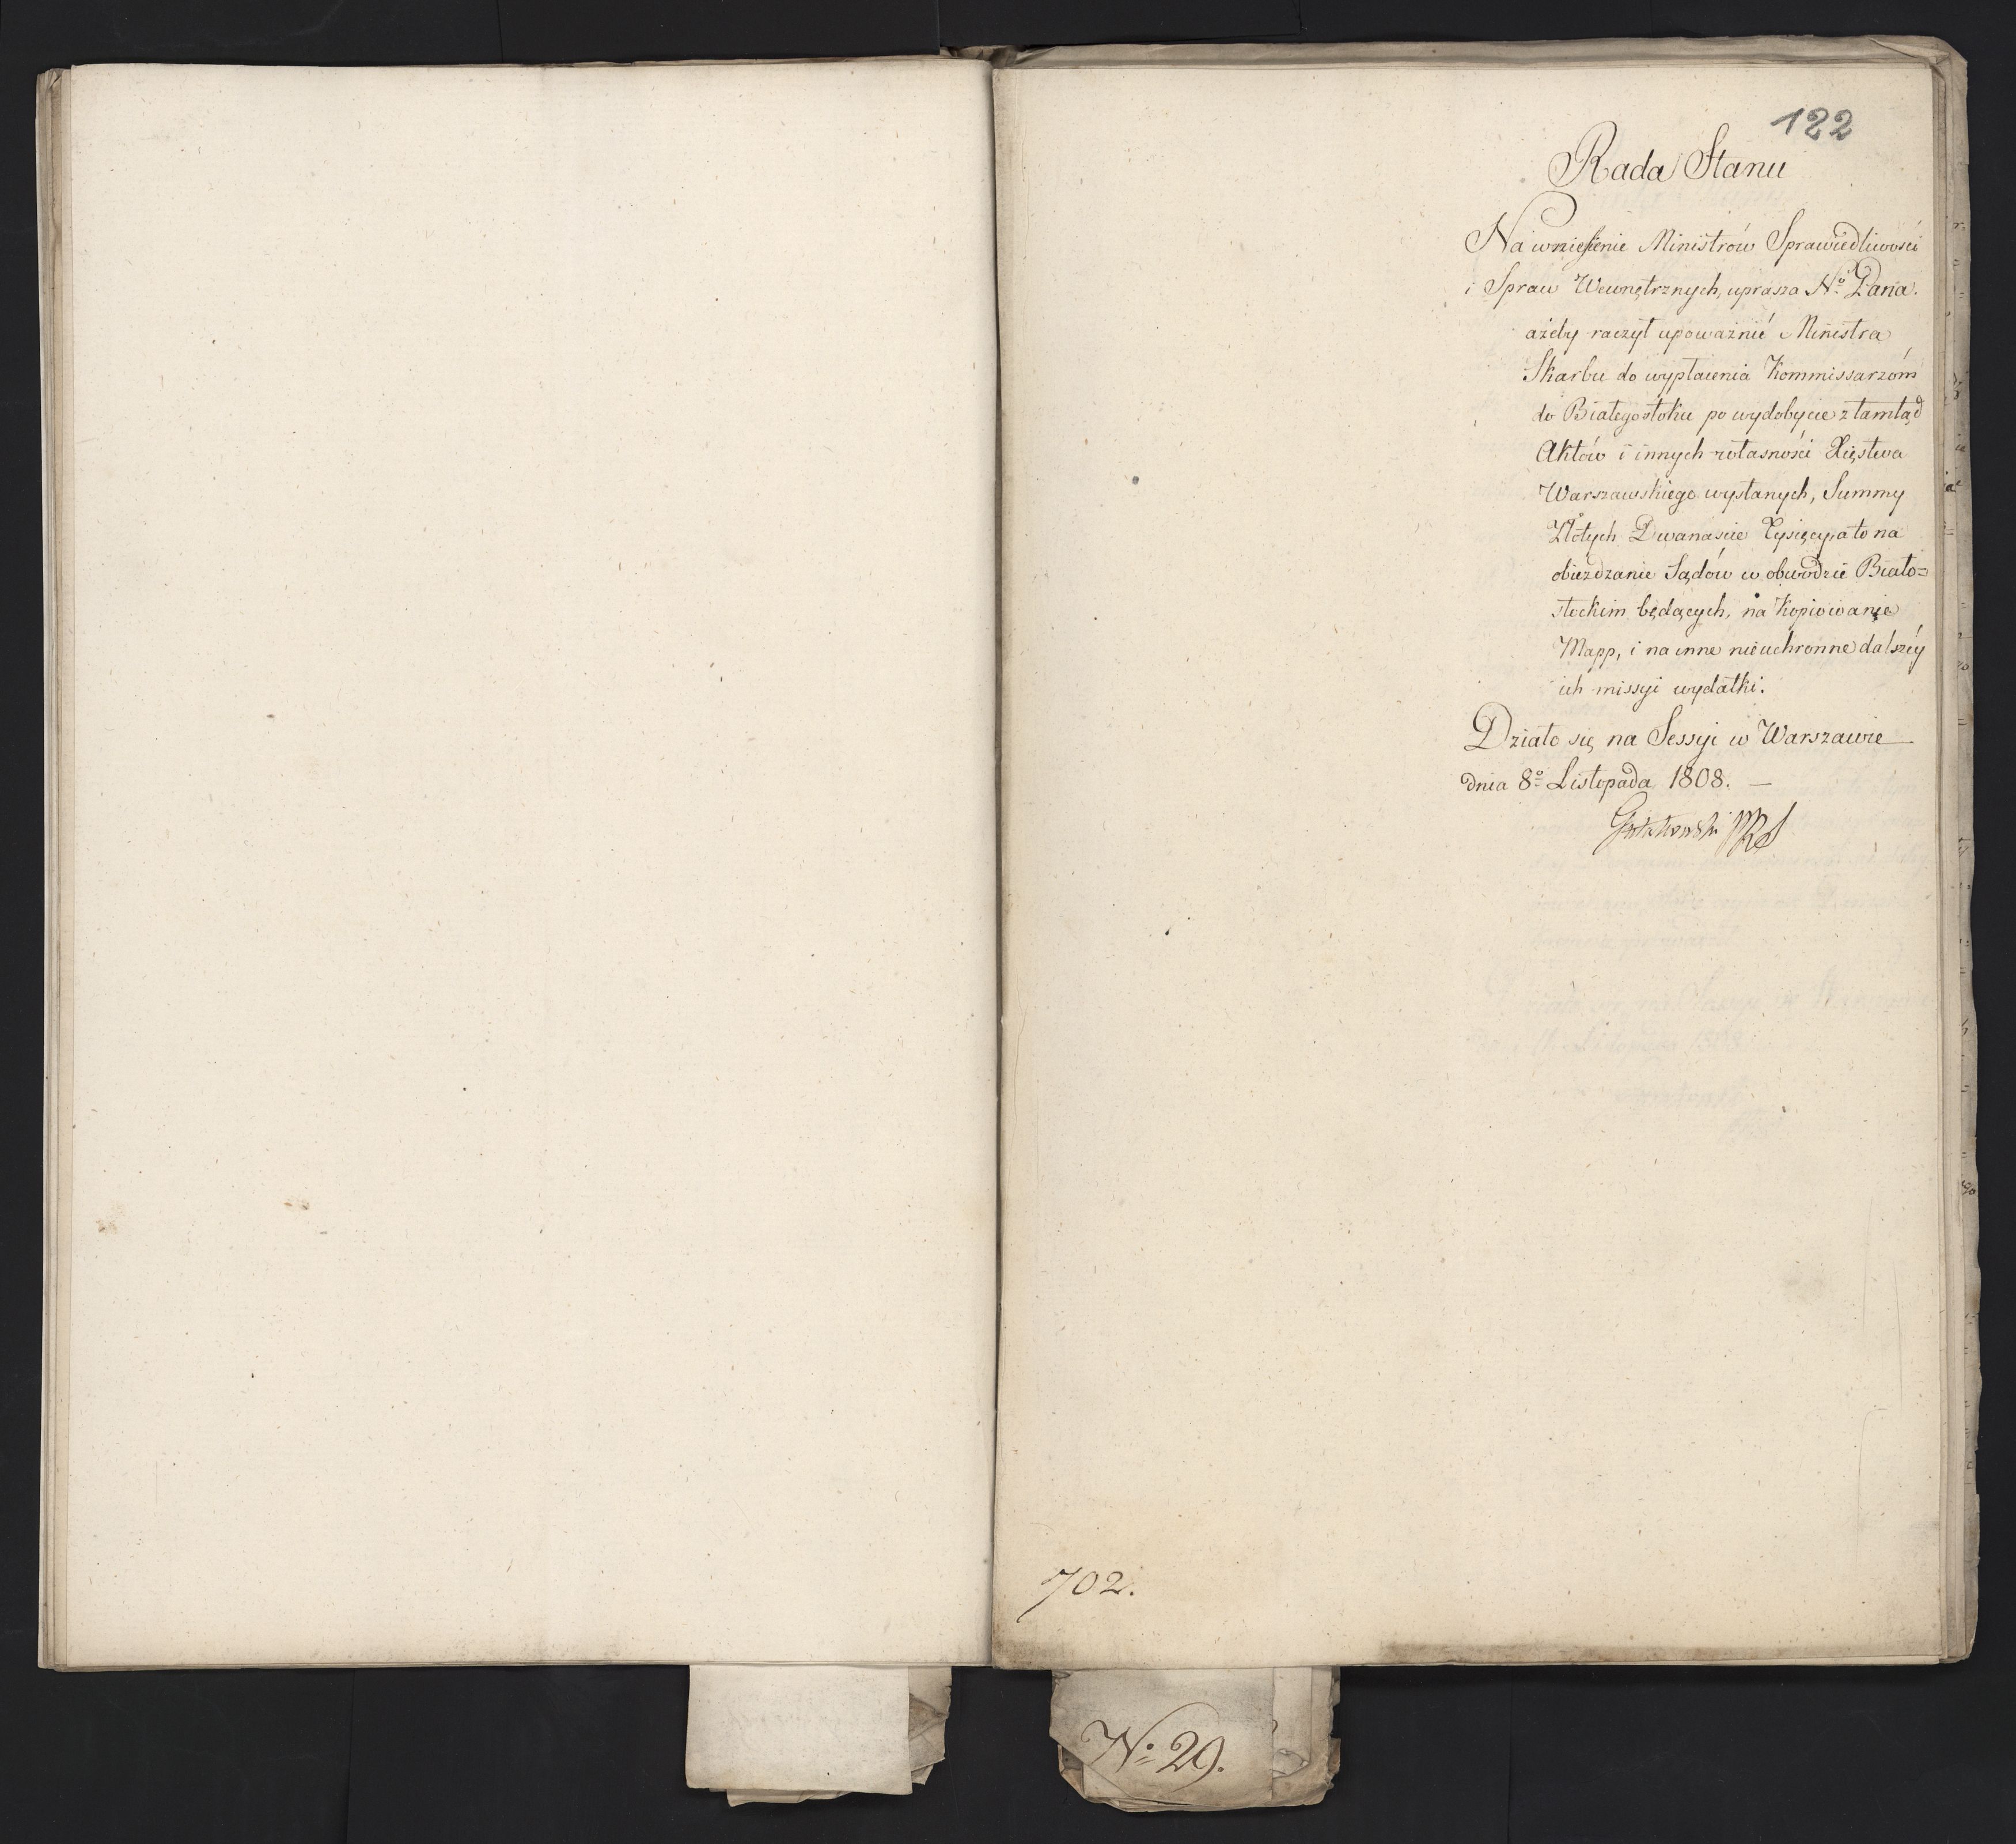 122
Rada Stanu
Na wniesienie Ministrów Sprawiedliwości
i Spraw Wewnętrznych, uprasza Nº Pana.
ażeby raczył upoważnić Ministra
Skarbu do wypłacenia Kommissarzóm
do Białegostoku po wydobycie ztamtąd
Aktów i innych własności Xięstwa
Warszawskiego wysłanych, Summy
Złotych Dwanaście Tysięcy, a to na
obieżdzanie Sądów w obwodzie Biało=
stockim będących, na Kopiowanie
Mapp, i na inne nieuchronne dalszéy
ich missyi wydatki.
Działo się na Sessyi w Warszawie
dnia 8º Listopada 1808. —
Gutakowski PRS
702.
Nº 29.